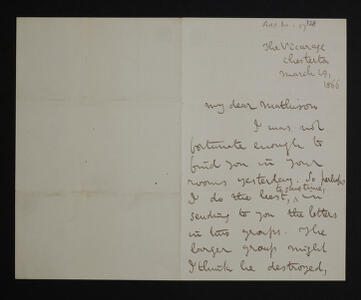 The Vicarage
Chesterton
March 29,
1866
My dear Mathison
I was not
fortunate enough to
find you in your
rooms yesterday. So perhaps
I do the best, to save time, in
sending to you the letters
in two groups. The
larger group might
I think be destroyed,